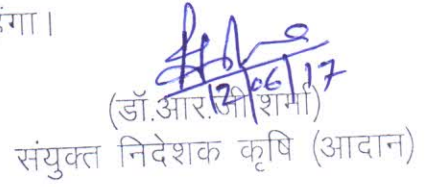 ंगा।
12/06/17
(डॉ.आर.जी शर्मा)
संयुक्त निदेशक कृषि (आदान)